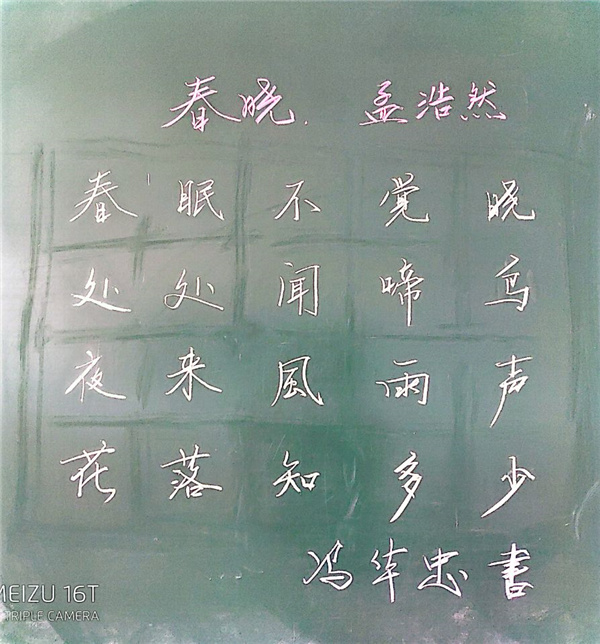 春晓. 孟浩然
春眠不觉晓
处处闻啼鸟
夜来風雨声
花落知多少
冯华忠书
MEIZU 16T
TRIPLE CAMERA